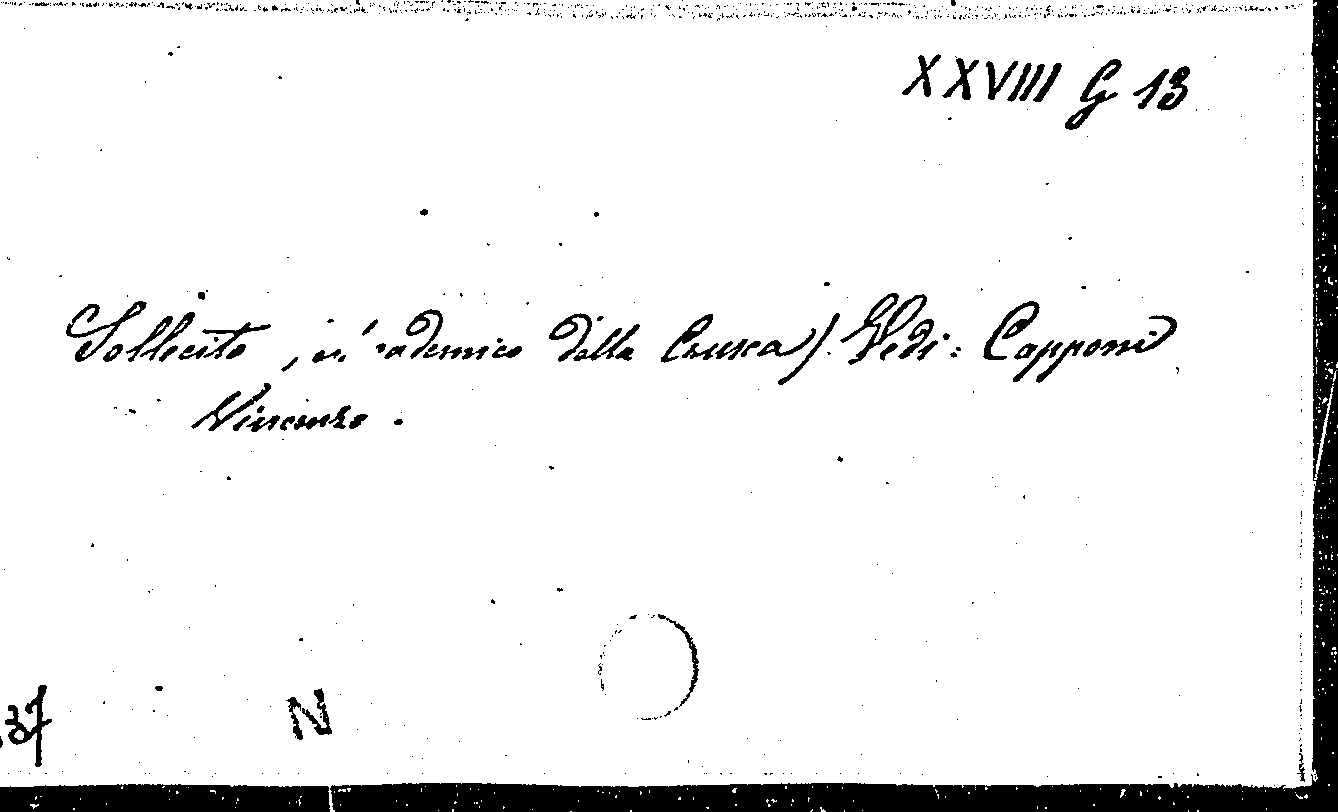 XXVIII G 13
Sollecito, accademico della Crusca). Vedi: Capponi
Vincenzo.
37
N